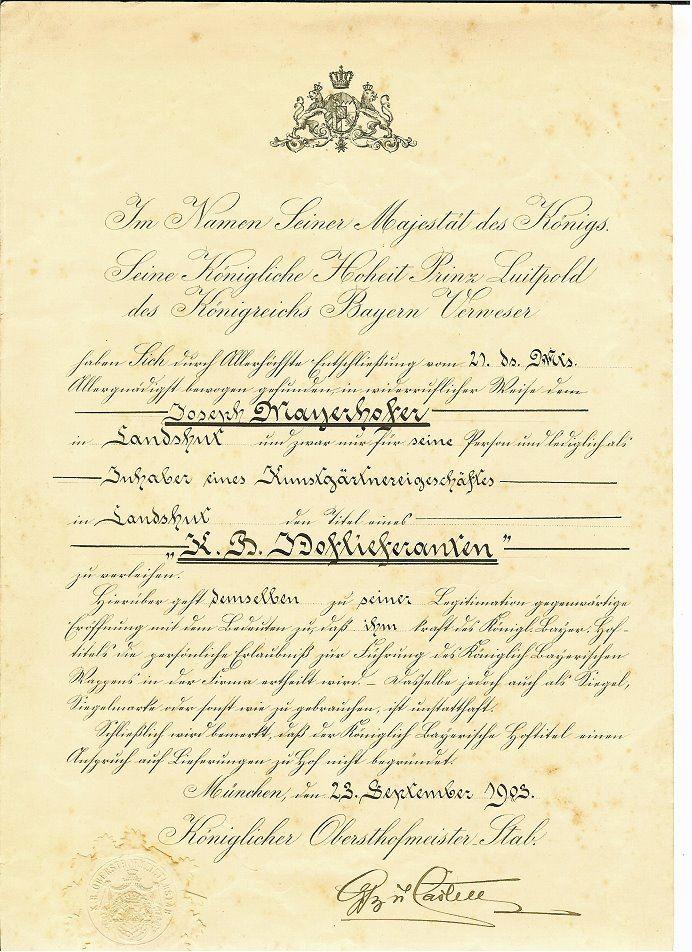 Im Namen Seiner Majestät des Königs.
Seine Königliche Hoheit Prinz Luitpold
des Königreichs Bayern Verweser
haben Sich durch Allerhöchste Entschließung vom 21. ds. Mts.
Allergnädigst bewogen gefunden, in widerruflicher Weise dem
Joseph Mayerhofer
in Landshut und zwar nur für seine Person und lediglich als
Inhaber eines Kunstgärtnereigeschäftes
in Landshut den Titel eines
„K. B. Hoflieferanten"
zu verleihen.
Hierüber geht demselben zu seiner Legitimation gegenwärtige
Eröffnung mit dem Bedeuten zu, daß ihm kraft des Königl. Bayer. Hof-
titels die persönliche Erlaubniß zur Führung des Königlich Bayerischen
Wappens in der Firma ertheilt wird. – Dasselbe jedoch auch als Siegel,
Siegelmarke oder sonst wie zu gebrauchen, ist unstatthaft.
Schließlich wird bemerkt, daß der Königlich Bayerische Hoftitel einen
Anspruch auf Lieferungen zu Hof nicht begründet.
München, den 23. September 1903.
Königlicher Obersthofmeister-Stab.